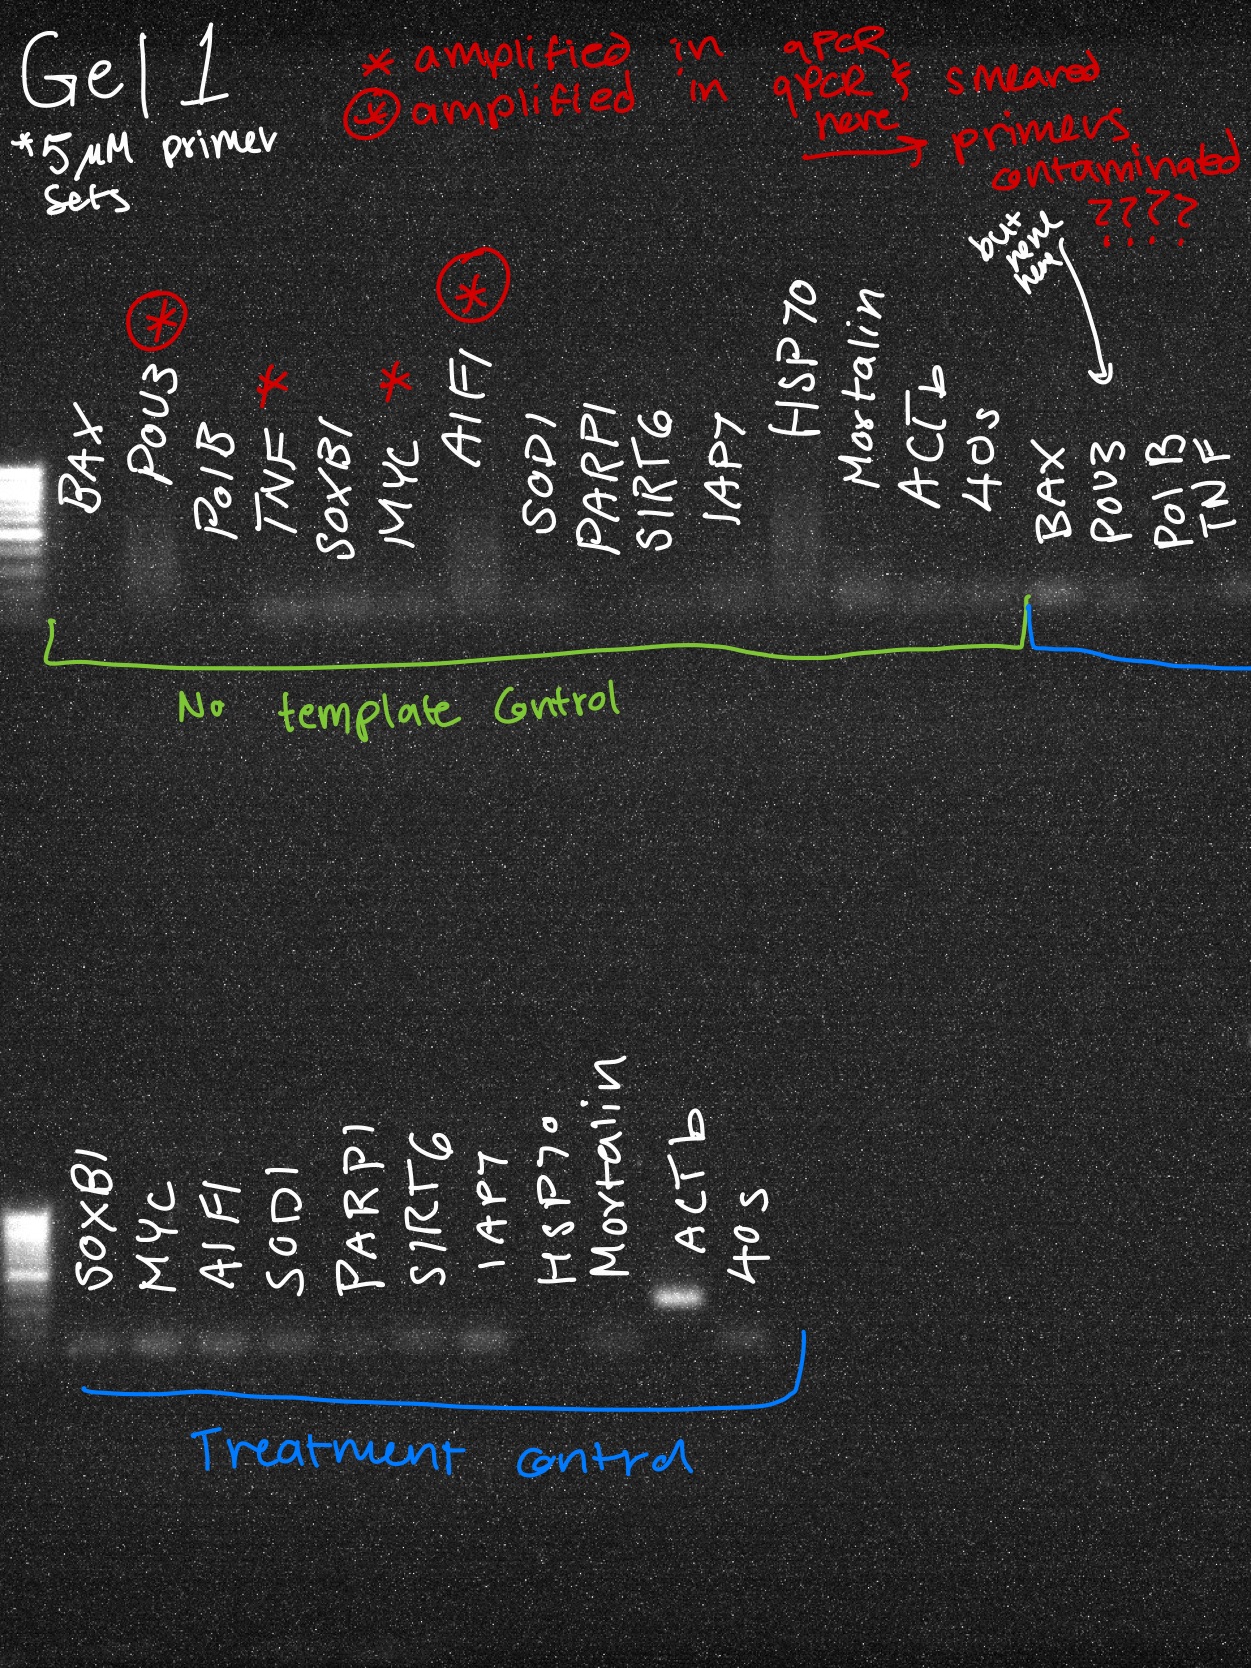 Gel 1
*5 μM primer
sets
* amplified in qPCR
⊛ amplified in qPCR & smeared
here → primers
contaminated
????
but
none
here
BAX
POU3
PolB
TNF
SOXB1
MYC
AIF1
SOD1
PARP1
SIRT6
IAP7
HSP70
Mortalin
ACTb
40s
BAX
POU3
Pol B
TNF
No template Control
SOXB1
MYC
AIF1
SOD1
PARP1
SIRT6
IAP7
HSP70
Mortalin
ACTb
40s
Treatment control